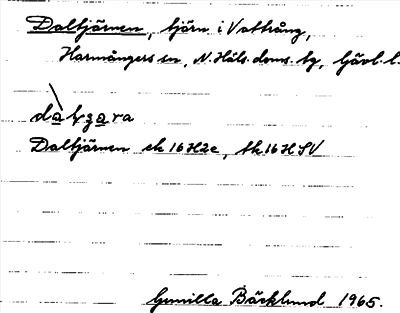 Daltjärnen, tjärn i Vattrång,
Harmångers sn, N. Häls. doms. tg, Gävl. l.
Daltjärnen ek 16H2e, tk 16H SV
Gunilla Bäcklund 1965.